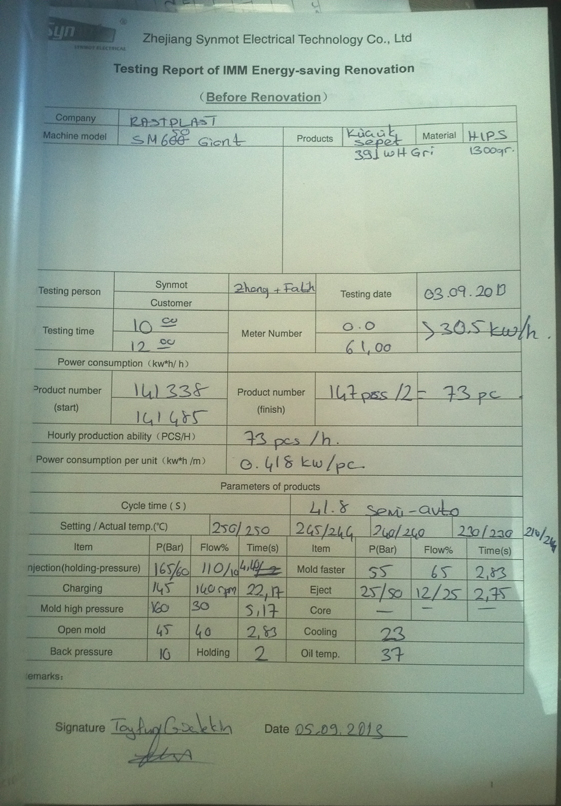 Syn
SYNMOT ELECTRICAL
Zhejiang Synmot Electrical Technology Co., Ltd
Testing Report of IMM Energy-saving Renovation
(Before Renovation)
Company RASTPLAST
Machine model SM650 Giant Products Küçük sepet Material HIPS
391 WH Gri 1300gr.
Testing person Synmot Zhang + Fatih Testing date 03.09.2013
Customer
Testing time 10 00 Meter Number 0.0 >30.5 kw/h.
12 00 61,00
Power consumption (kw*h/ h)
Product number (start) 141338 Product number (finish) 147 pss /2 = 73 pc
141485
Hourly production ability (PCS/H) 73 pcs /h.
Power consumption per unit (kw*h /m) 0.418 kw/pc
Parameters of products
Cycle time ( S ) 41.8 semi-auto
Setting / Actual temp.(℃) 250/250 245/244 240/240 230/230
Item P(Bar) Flow% Time(s) Item P(Bar) Flow% Time(s)
njection(holding-pressure) 165/60 Mold faster 55 65 2,83
Charging 145 140 rpm 22,17 Eject 25/50 12/25 2,75
Mold high pressure 160 30 5,17 Core — — —
Open mold 45 40 2,83 Cooling 23
Back pressure 10 Holding 2 Oil temp. 37
emarks:
Signature Date 05.09.2013